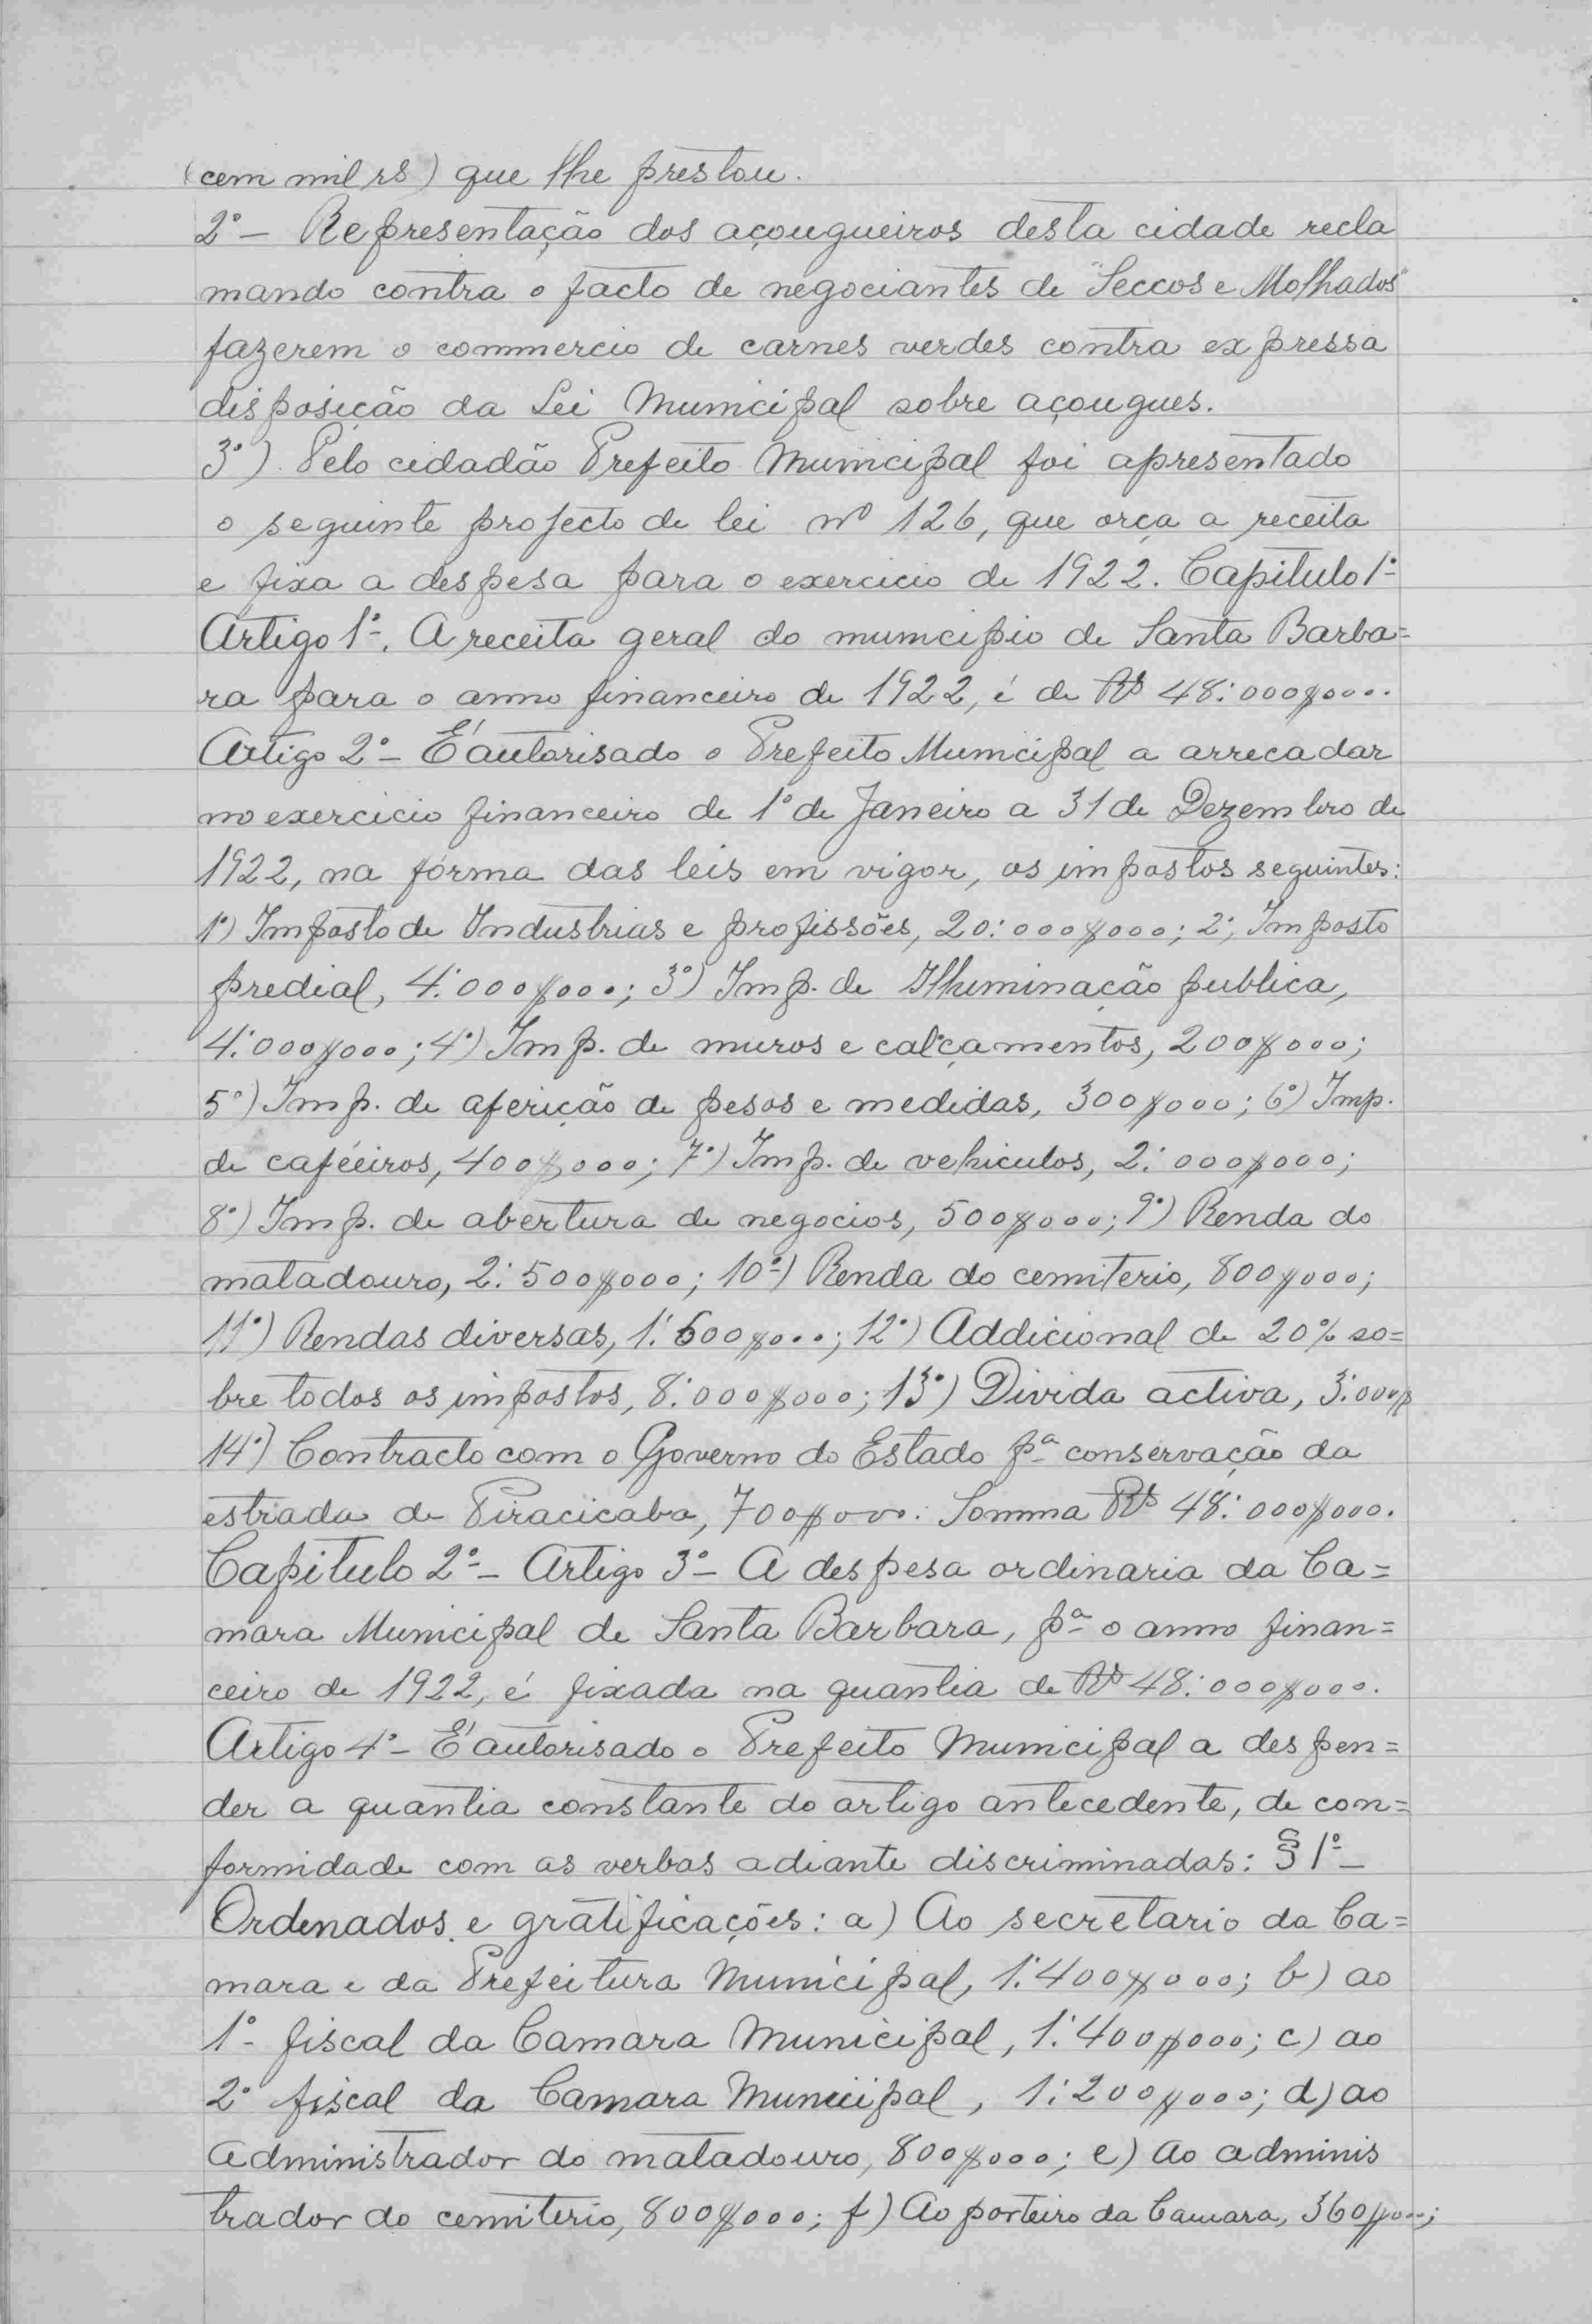 (cem mil rs) que lhe prestou.
2º - Representação dos açougueiros desta cidade recla
mando contra o facto de negociantes de "Seccos e Molhados"
fazerem o commercio de carnes verdes contra expressa
disposição da Lei Municipal sobre açougues.
3º) Pelo cidadão Prefeito Municipal foi apresentado
o seguinte projecto de lei nº 126, que orça a receita
e fixa a despesa para o exercicio de 1922. Capitulo 1º-
Artigo 1º-. A receita geral do municipio de Santa Barba=
ra para o anno financeiro de 1922, é de Rs 48:000$000.
Artigo 2º - É autorisado o Prefeito Municipal a arrecadar
no exercicio financeiro de 1º de Janeiro a 31 de Dezembro de
1922, na fórma das leis em vigor, os impostos seguintes:
1º) Imposto de Industrias e profissões, 20:000$000; 2º, Imposto
predial, 4:000$000; 3º) Imp. de Illuminação publica,
4:000$000; 4º) Imp. de muros e calçamentos, 200$000;
5º) Imp. de aferição de pesos e medidas, 300$000; 6º) Imp.
de caféeiros, 400$000; 7º) Imp. de vehiculos, 2:000$000;
8º) Imp. de abertura de negocios, 500$000; 9º) Renda do
matadouro, 2:500$000; 10º) Renda do cemiterio, 800$000;
11º) Rendas diversas, 1:600$000; 12º) Addicional de 20% so=
bre todos os impostos, 8:000$000; 13º) Divida activa, 3:000$
14º) Contracto com o Governo do Estado pª conservação da
estrada de Piracicaba, 700$000. Somma Rs 48:000$000.
Capitulo 2º - Artigo 3º - A despesa ordinaria da Ca=
mara Municipal de Santa Barbara, pª o anno finan=
ceiro de 1922, é fixada na quantia de Rs 48:000$000.
Artigo 4º - É autorisado o Prefeito Municipal a despen=
der a quantia constante do artigo antecedente, de con=
formidade com as verbas adiante discriminadas: § 1º -
Ordenados e gratificações: a) Ao secretario da Ca=
mara e da Prefeitura Municipal, 1:400$000; b) ao
1º - fiscal da Camara Municipal, 1:400$000; c) ao
2º fiscal da Camara Municipal, 1:200$000; d) ao
administrador do matadouro, 800$000; e) ao adminis
trador do cemiterio, 800$000; f) Ao porteiro da Camara, 360$000;